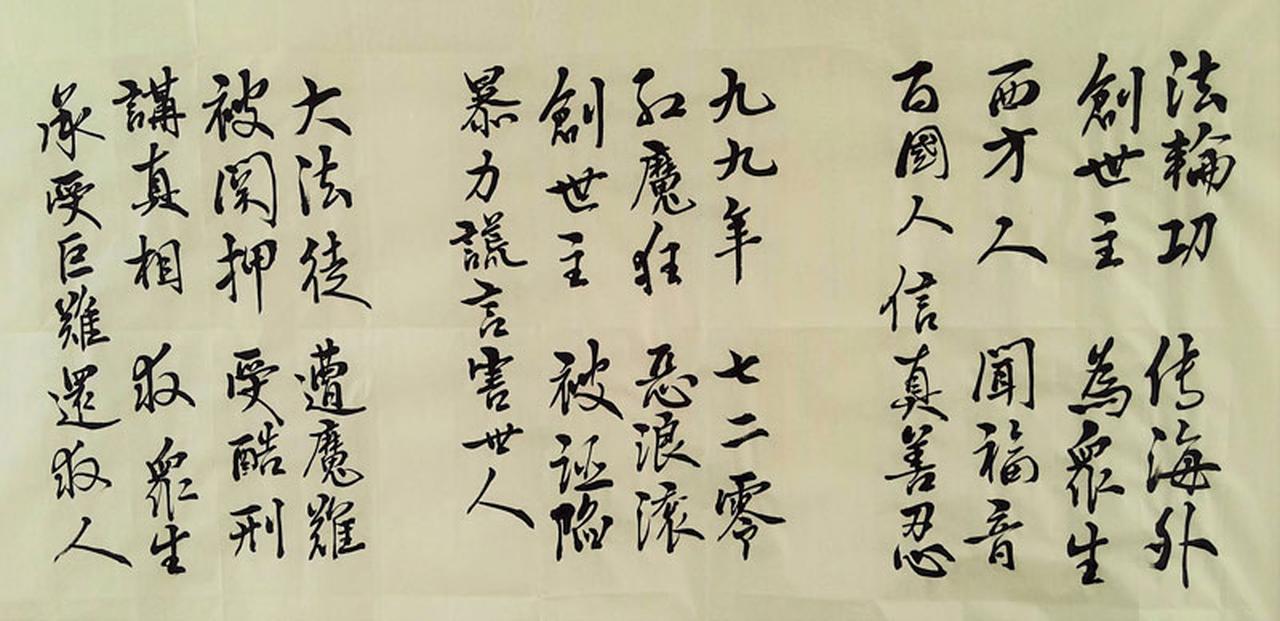 法輪功 传海外
創世主 為眾生
西方人 聞福音
百國人信真善忍
九九年 七二零
紅魔狂 惡浪滚
創世主 被誣陷
暴力謊言害世人
大法徒 遭魔難
被関押 受酷刑
講真相 救眾生
承受巨難還救人